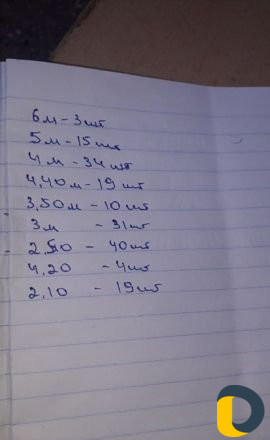 6м - 3шт
5м - 15шт
4м - 34шт
4,40м - 19шт
3,50м - 10шт
3м - 31шт
2,50 - 40шт
4,20 - 4шт
2,10 - 19шт